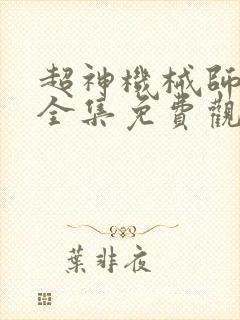 超神機械師
全集免費觀
葉非夜